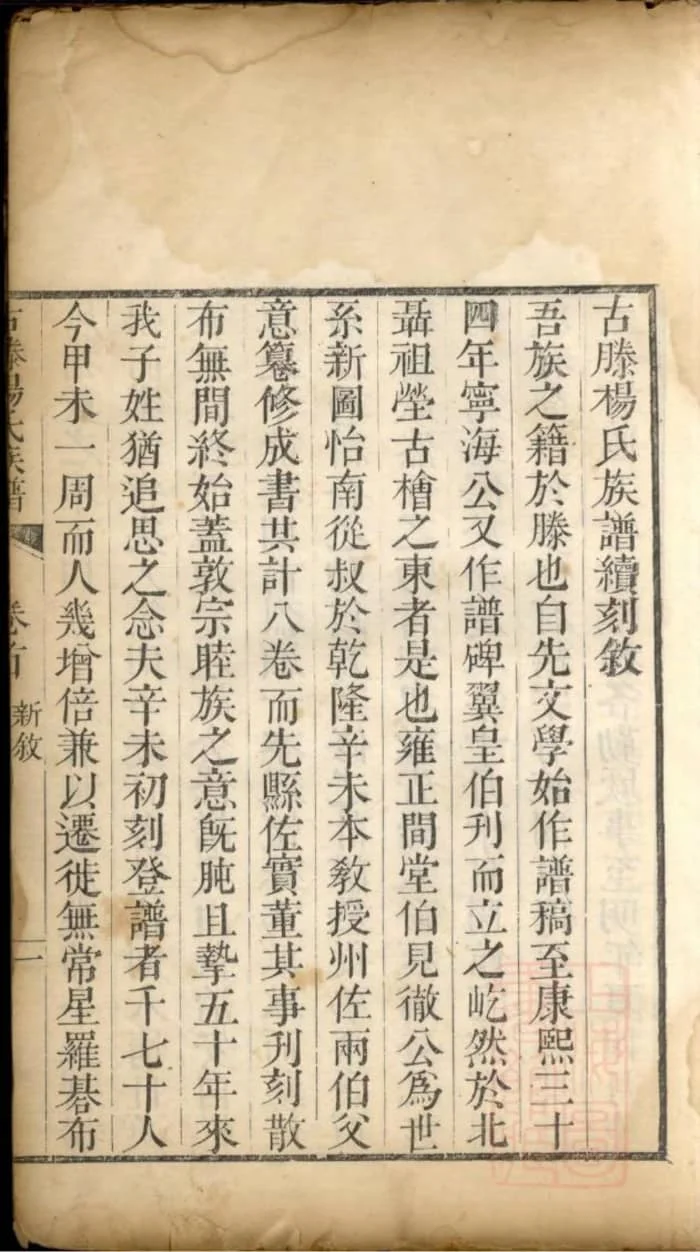 古滕楊氏族譜續刻敘
吾族之籍於滕也自先文學始作譜稿至康熙三十
四年寧海公又作譜碑翼皇伯刊而立之屹然於北
聶祖塋古檜之東者是也雍正間堂伯見徹公為世
系新圖怡南從叔於乾隆辛未本敎授州佐兩伯父
意纂修成書共計八卷而先縣佐實董其事刊刻散
布無間終始蓋敦宗睦族之意旣肫且摯五十年來
我子姓猶追思之念夫辛未初刻登譜者千七十人
今甲未一周而人幾增倍兼以遷徙無常星羅碁布
古滕楊氏族譜
卷首
新敘
一